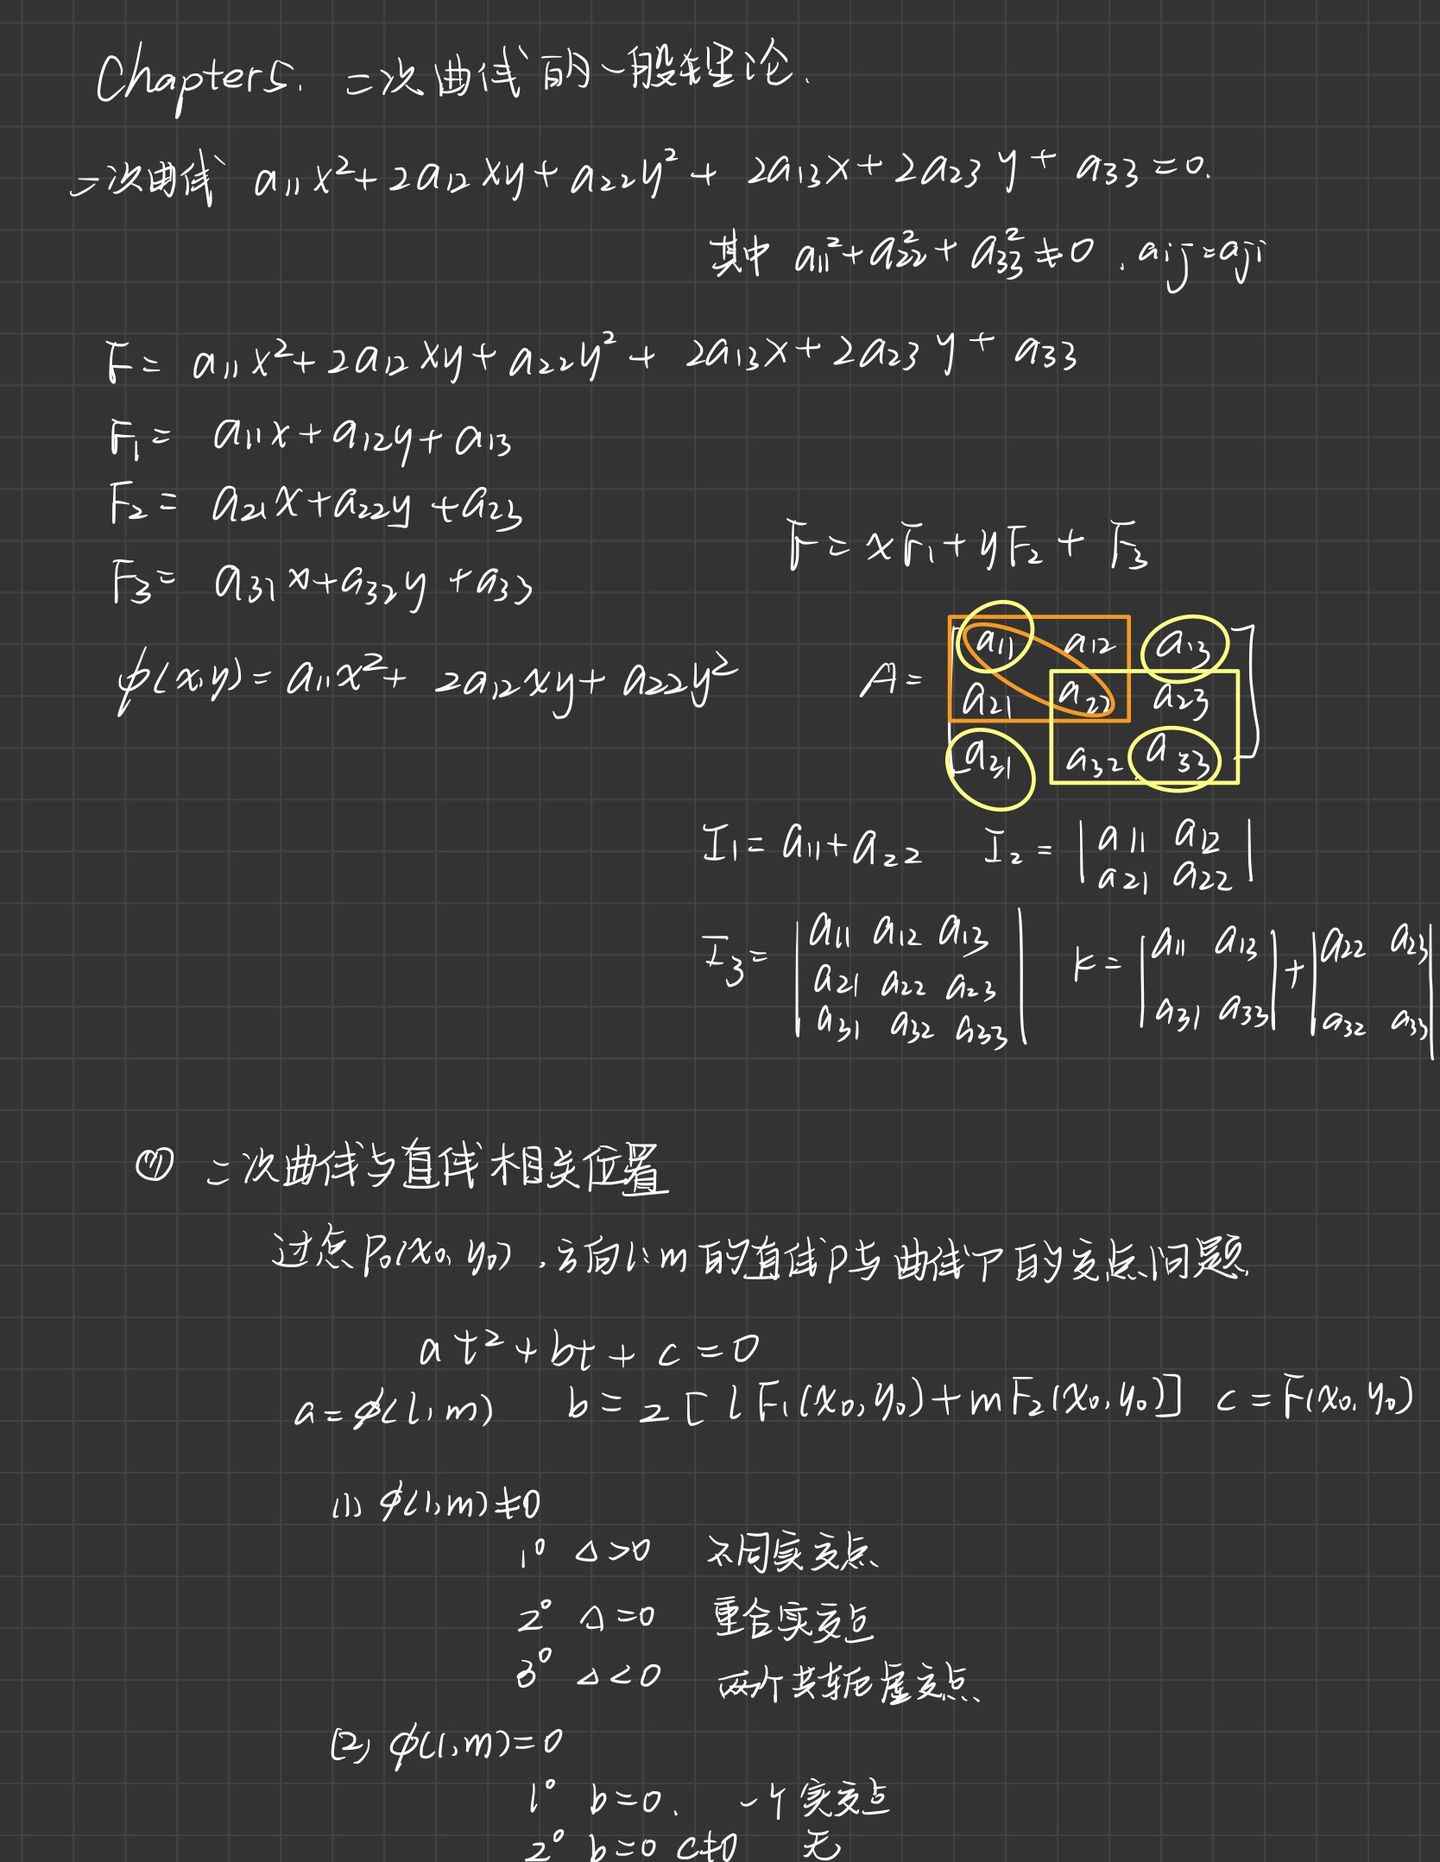 Chapter5. 二次曲线的一般理论.
二次曲线 a₁₁x²+2a₁₂xy+a₂₂y²+2a₁₃x+2a₂₃y+a₃₃=0.
其中 a₁₁²+a₂₂²+a₃₃²≠0,aij=aji
F= a₁₁x²+2a₁₂xy+a₂₂y²+2a₁₃x+2a₂₃y+a₃₃
F₁= a₁₁x+a₁₂y+a₁₃
F₂= a₂₁x+a₂₂y+a₂₃
F=xF₁+yF₂+F₃
F₃= a₃₁x+a₃₂y+a₃₃
φ(x,y)=a₁₁x²+2a₁₂xy+a₂₂y²
A= [a₁₁ a₁₂ a₁₃
a₂₁ a₂₂ a₂₃
a₃₁ a₃₂ a₃₃]
I₁=a₁₁+a₂₂ I₂= |a₁₁ a₁₂|
|a₂₁ a₂₂|
I₃= |a₁₁ a₁₂ a₁₃| K= |a₁₁ a₁₃|+|a₂₂ a₂₃|
|a₂₁ a₂₂ a₂₃|
|a₃₁ a₃₂ a₃₃| |a₃₁ a₃₃| |a₃₂ a₃₃|
二次曲线与直线相关位置
过点P₀(x₀,y₀),方向l:m的直线P与曲线Γ的交点问题
at²+bt+c=0
a=φ(l,m) b=2[lF₁(x₀,y₀)+mF₂(x₀,y₀)] c=F(x₀,y₀)
(1) φ(l,m)≠0
1° Δ>0 不同实交点
2° Δ=0 重合实交点
3° Δ<0 两个共轭虚交点
(2) φ(l,m)=0
1° b=0. 一个实交点
2° b=0 c≠0 无